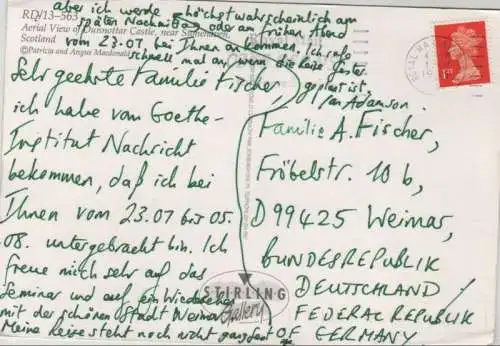 RD/13-563
Aerial View of Dunnottar Castle, near Stonehaven,
Scotland
©Patricia and Angus Macdonald
Sehr geehrte Familie Fischer,
ich habe vom Goethe-
Institut Nachricht
bekommen, daß ich bei
Ihnen vom 23.07 bis 05.
08. untergebracht bin. Ich
freue mich sehr auf das
Seminar und auf ein Wiedersehen
mit der schönen Stadt Weimar.
Meine Reise steht noch nicht ganz fest
aber ich werde höchstwahrscheinlich am
späten Nachmittag oder am frühen Abend
vom 23.07 bei Ihnen ankommen. Ich rufe
schnell mal an, wenn die Reise fester
geplant ist.
Ian Adamson.
Familie A. Fischer,
Fröbelstr. 10 b,
D99425 Weimar,
BUNDESREPUBLIK
DEUTSCHLAND /
FEDERAL REPUBLIC
OF GERMANY
STIRLING
Gallery
1ST